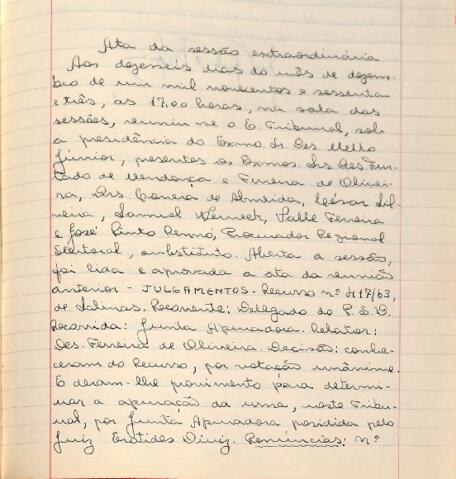 Ata da sessão extraordinária
Aos dezesseis dias do mês de dezem-
bro de um mil novecentos e sessenta
e três, às 17.00 horas, na sala das
sessões, reuniu-se o E. Tribunal, sob
a presidência do Exmo. Sr. Des. Mello
Júnior, presentes os Exmos. Srs. Des. Fur-
tado de Mendonça e Ferreira de Olivei-
ra, Drs. Correia de Almeida, Cesar Sil-
veira, Samuel Werneck, Valle Ferreira
e José Pinto Rennó, Procurador Regional
Eleitoral, substituto. Aberta a sessão,
foi lida e aprovada a ata da reunião
anterior - JULGAMENTOS. Recurso nº 417/63,
de Salinas. Recorrente: Delegado do P.S.D.
Recorrida: Junta Apuradora. Relator:
Des. Ferreira de Oliveira. Decisão: conhe-
ceram do Recurso, por votação unânime.
E deram-lhe provimento para determi-
nar a apuração da urna, neste Tribu-
nal, por Junta Apuradora presidida pelo
Juiz Eratides Diniz. Renúncias: nº